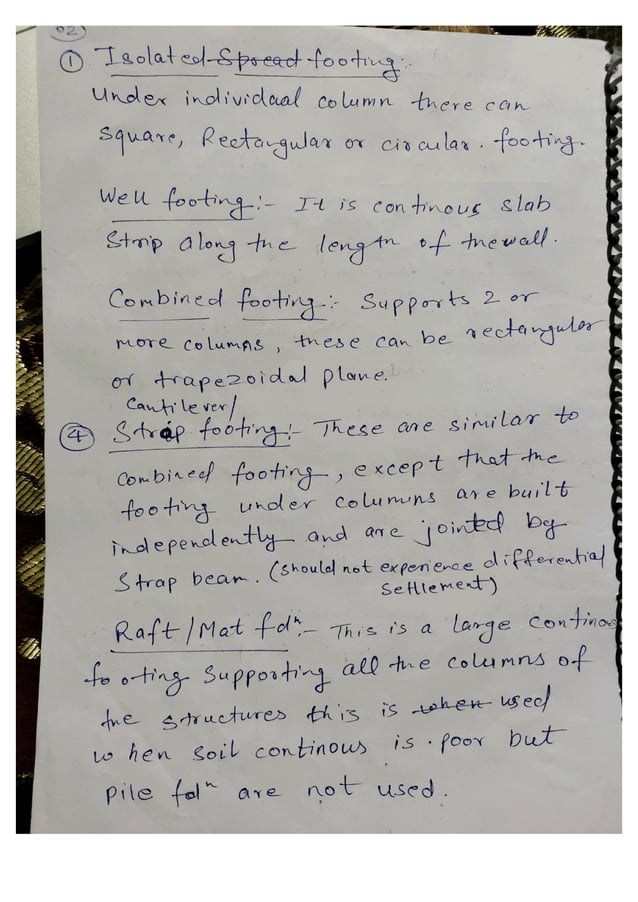 02
① Isolated Spread footing:-
Under individual column there can
Square, Rectangular or circular. footing.
Wall footing:- It is continous slab
Strip along the length of the wall.
Combined footing:- Supports 2 or
more columns, these can be rectangular
or trapezoidal plane.
Cantilever/
④ Strap footing:- These are similar to
combined footing, except that the
footing under columns are built
independently and are jointed by
Strap beam. (should not experience differential
settlement)
Raft/Mat fdⁿ:- This is a large continous
footing supporting all the columns of
the structures this is when used
when soil continous is poor but
pile fdⁿ are not used.